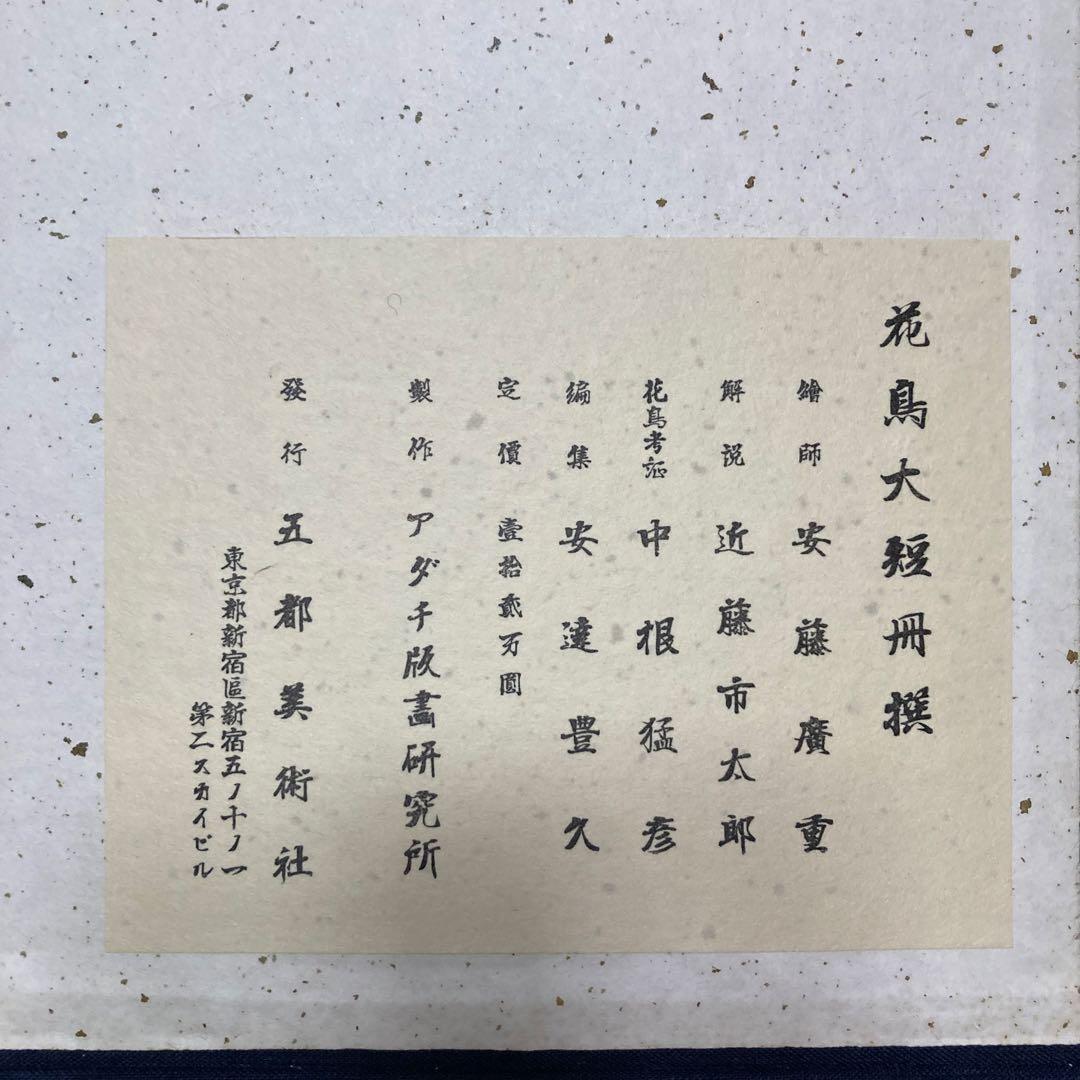 花鳥大短冊撰
繪師 安藤廣重
解説 近藤市太郎
花鳥考証 中根猛彦
編集 安達豊久
定價 壹拾貳万圓
製作 アダチ版畫研究所
發行 五都美術社
東京都新宿區新宿五ノ十ノ一
第二スカイビル